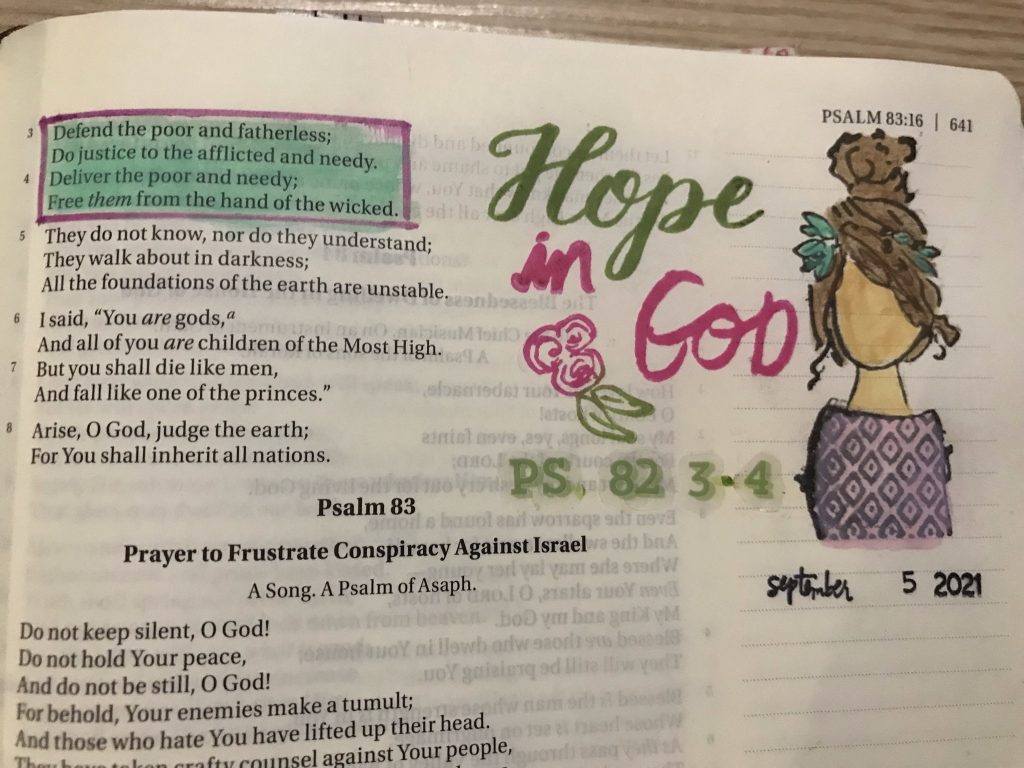 PSALM 83:16 | 641
3 Defend the poor and fatherless;
Do justice to the afflicted and needy.
4 Deliver the poor and needy;
Free them from the hand of the wicked.
5 They do not know, nor do they understand;
They walk about in darkness;
All the foundations of the earth are unstable.
6 I said, “You are gods,a
And all of you are children of the Most High.
7 But you shall die like men,
And fall like one of the princes.”
8 Arise, O God, judge the earth;
For You shall inherit all nations.
Psalm 83
Prayer to Frustrate Conspiracy Against Israel
A Song. A Psalm of Asaph.
Do not keep silent, O God!
Do not hold Your peace,
And do not be still, O God!
For behold, Your enemies make a tumult;
And those who hate You have lifted up their head.
They have taken crafty counsel against Your people,
Hope
in
God
PS. 82 3-4
september 5 2021